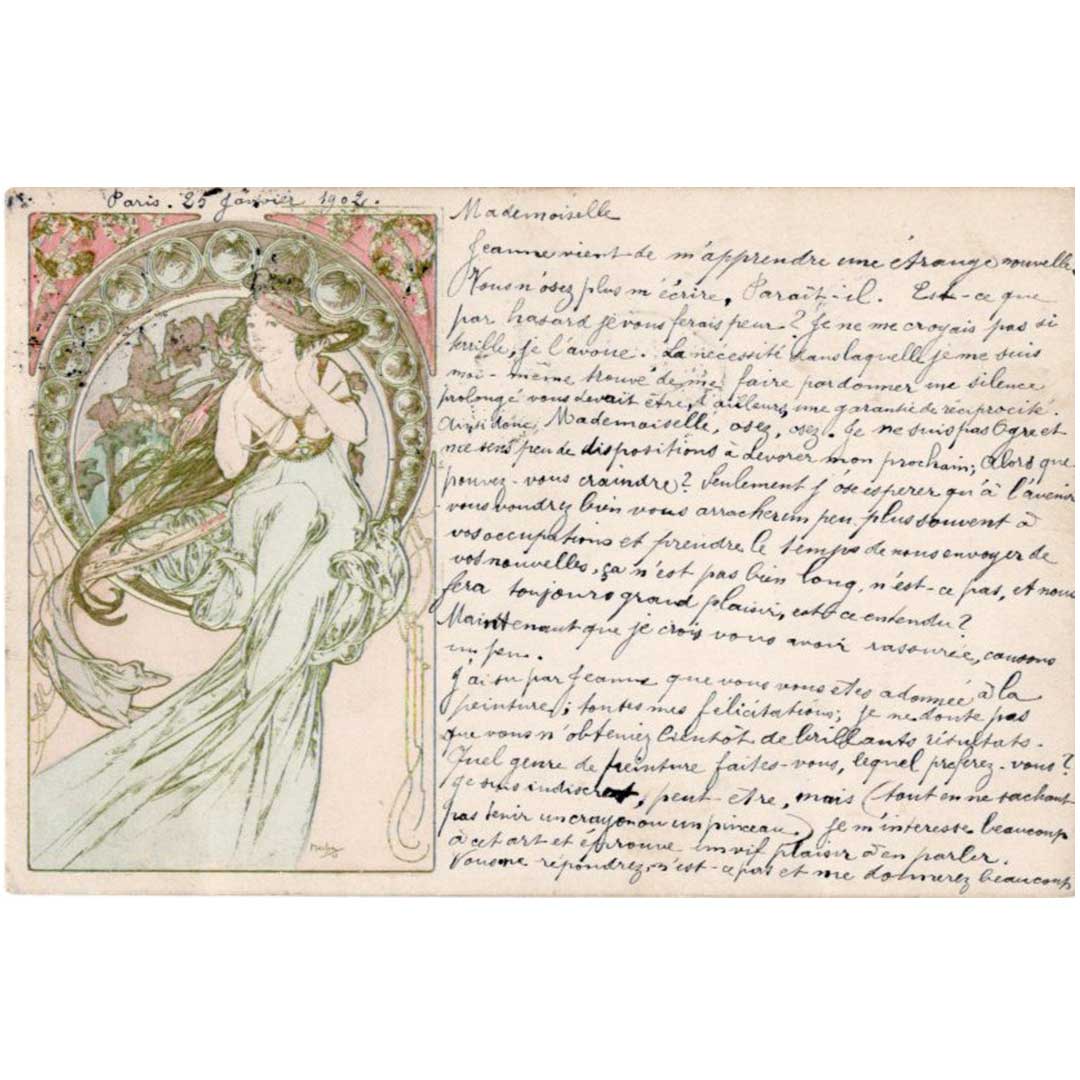 Paris. 25 Janvier 1902.
Mademoiselle
Jeanne vient de m'apprendre une étrange nouvelle.
Vous n'osez plus m'écrire, Paraît-il. Est-ce que
par hasard je vous ferais peur? Je ne me croyais pas si
terrible, je l'avoue. La nécessité dans laquelle je me suis
moi-même trouvé de me faire pardonner une silence
prolongé vous devait être, d'ailleurs, une garantie de réciprocité.
Ainsi donc, Mademoiselle, osez, osez. Je ne suis pas Ogre et
me sens peu de dispositions à dévorer mon prochain; Alors que
pouvez-vous craindre? Seulement j'ose esperer qu'à l'avenir
vous voudrez bien vous arracher un peu plus souvent à
vos occupations et prendre le temps de nous envoyer de
vos nouvelles, ça n'est pas bien long, n'est-ce pas, et nous
fera toujours grand plaisir, est-ce entendu?
Maintenant que je crois vous avoir rassurée, causons
un peu.
J'ai su par Jeanne que vous vous etes adonnée à la
peinture; toutes mes felicitations; je ne doute pas
que vous n'obteniez bientôt de brillants résultats.
Quel genre de peinture faites-vous, lequel preferez-vous?
Je suis indiscret, peut etre, mais (tout en ne sachant
pas tenir un crayon ou un pinceau.) je m'interesse beaucoup
à cet art et éprouve un vif plaisir à en parler.
Vous me répondrez, n'est-ce pas et me donnerez beaucoup
Mucha